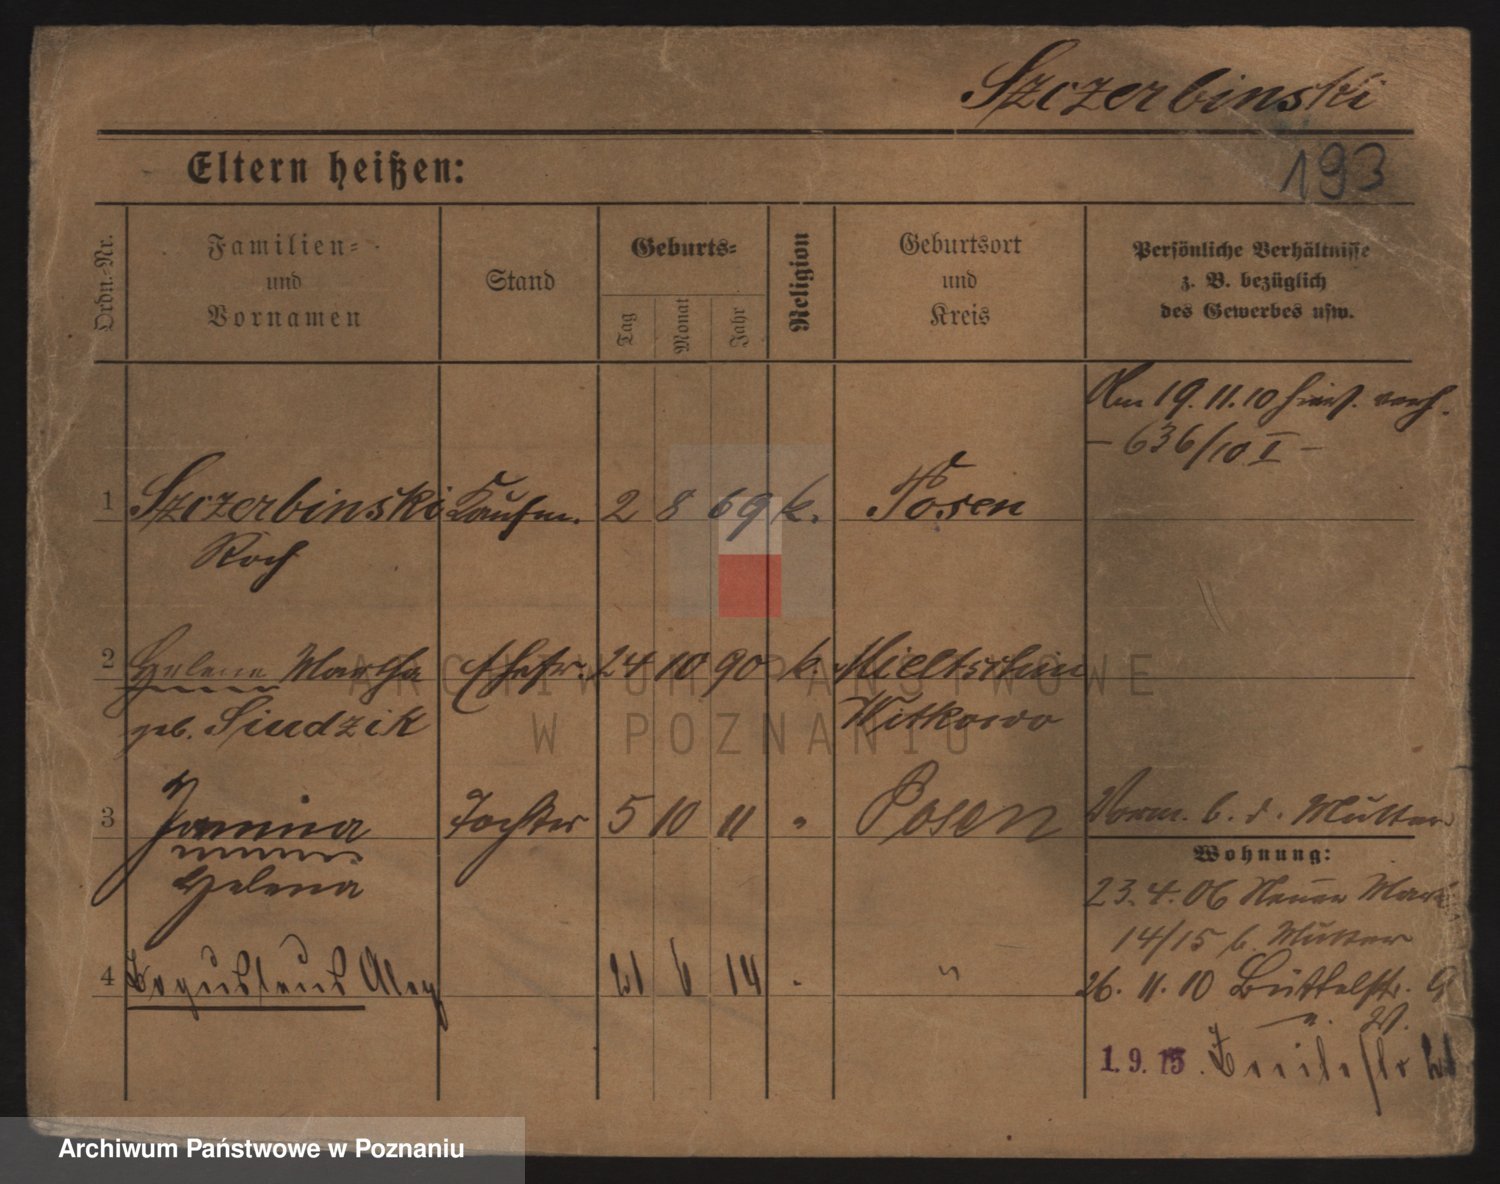 Szczerbinski
Eltern heißen:
193
Ordn.-Nr.
Familien-
und
Vornamen
Stand
Geburts-
Tag
Monat
Jahr
Religion
Geburtsort
und
Kreis
Persönliche Verhältnisse
z. B. bezüglich
des Gewerbes usw.
Am 19.11.10 hies. verh.
– 636/10 I –
1 Szczerbinski Kaufm. 2 8 69 k. Posen
Roch
2 Helene Martha Ehefr. 24 10 90 k. Mieltschin
geb. Siudzik Witkowo
3 Janina Tochter 5 10 11 " Posen
Helena
Vorm. b. d. Mutter
Wohnung:
23.4.06 Neuer Mark
14/15 b. Mutter
4 Boguslaus Alex 21 6 14 "
26.11.10 Büttelstr. 9
1.9.15. Breitestr 21
ARCHIWUM PAŃSTWOWE
W POZNANIU
Archiwum Państwowe w Poznaniu